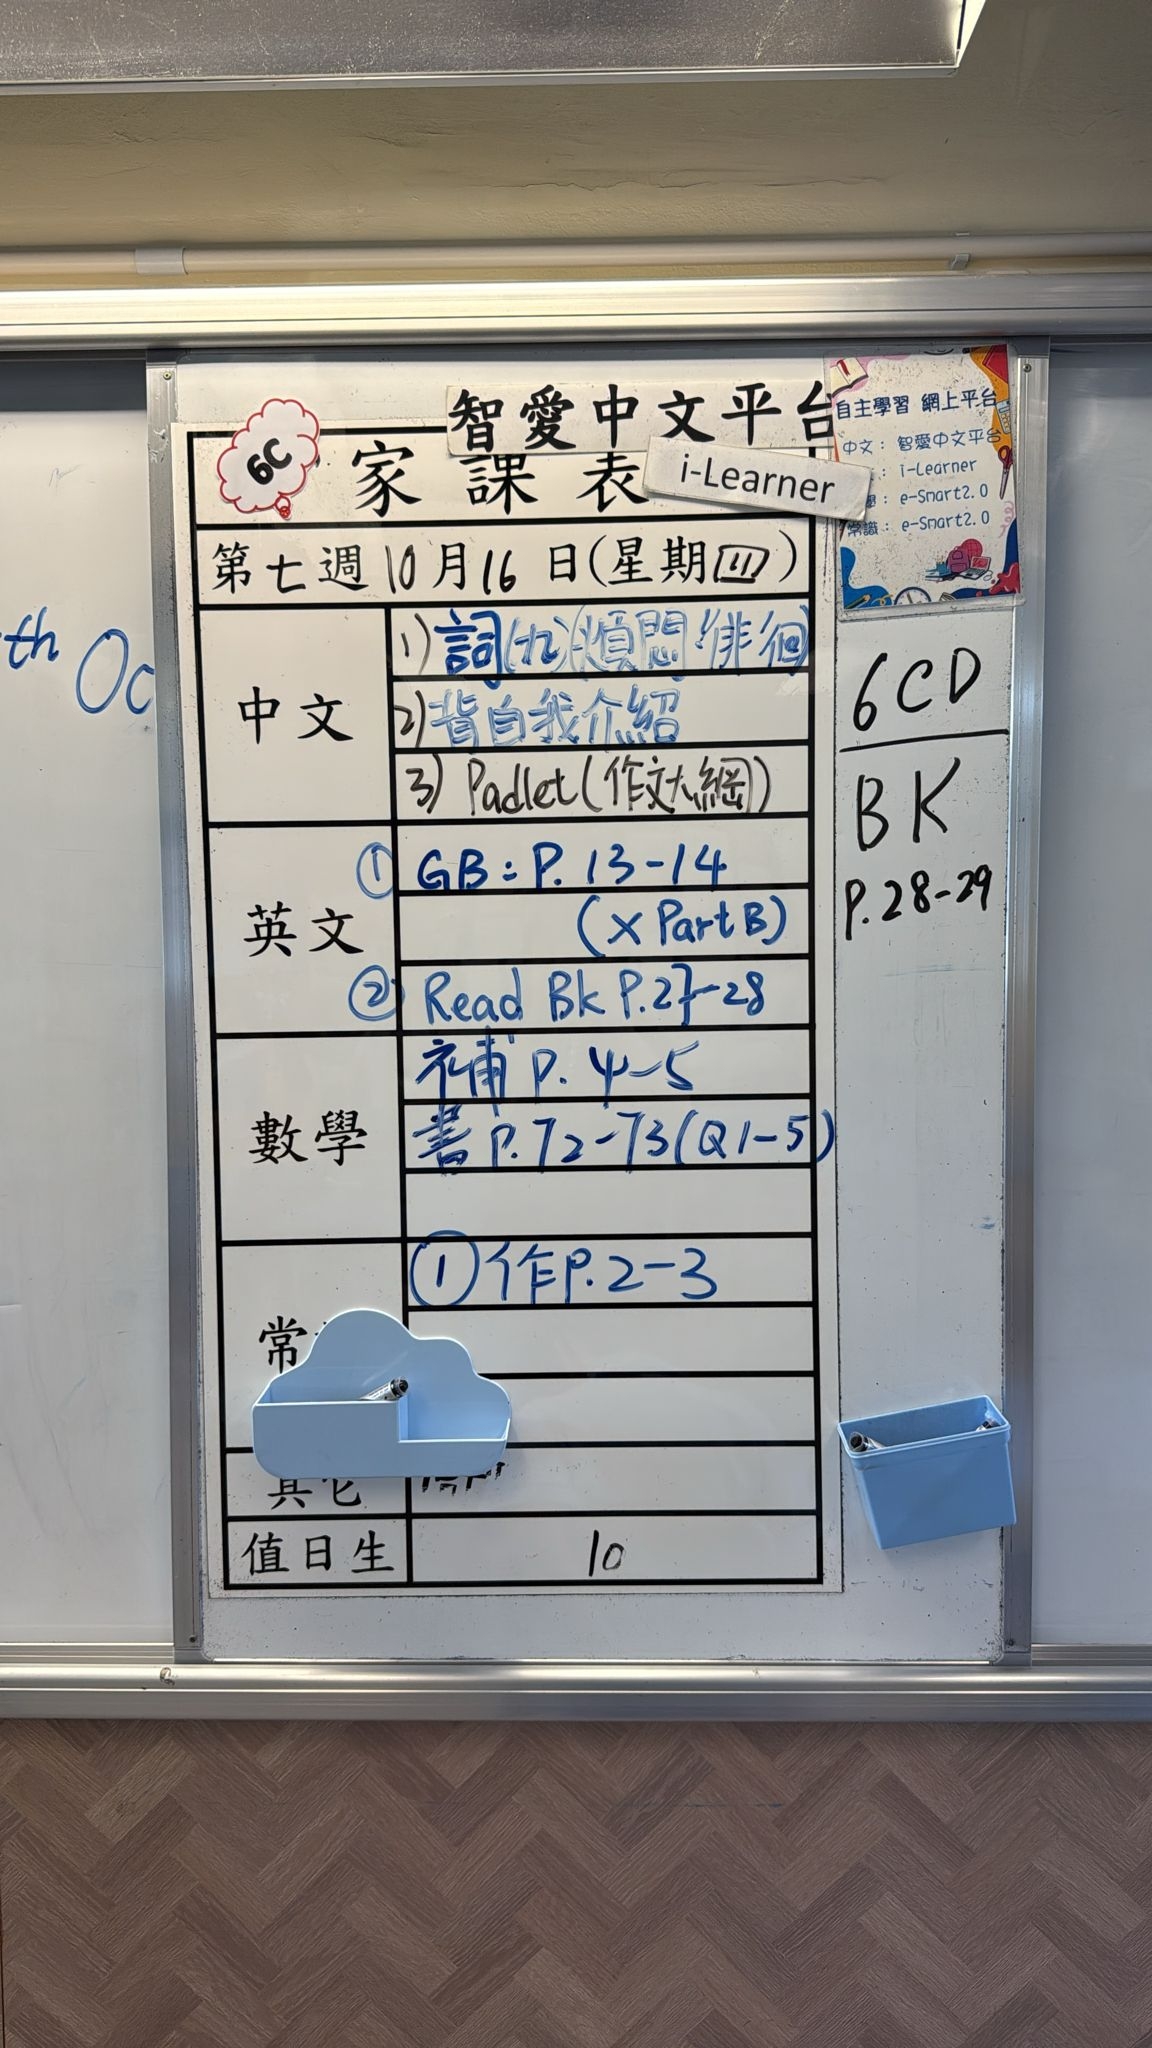 智愛中文平台
i-Learner
6C
家課表
第七週10月16日(星期四)
中文
1) 詞(九)(煩悶、徘徊)
2) 背自我介紹
3) Padlet(作文大綱)
英文
① GB: P. 13-14
(X Part B)
② Read Bk P.27-28
數學
補 P. 4-5
書 P. 72-73(Q1-5)
常
① 作P. 2-3
其它
值日生
10
自主學習 網上平台
中文: 智愛中文平台
: i-Learner
: e-Smart2.0
常識: e-Smart2.0
6CD
BK
P.28-29
th Oc